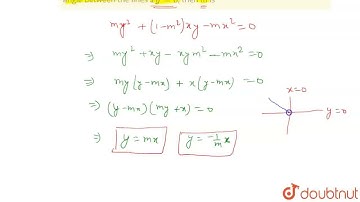 angle between the lines xy = 0, then m is
my² + (1-m²)xy - mx² = 0
⇒ my² + xy - xym² - mx² = 0
⇒ my(y-mx) + x(y-mx) = 0
⇒ (y-mx)(my+x) = 0
x=0
y=0
⇒ y = mx y = -1/m x
doubtnut